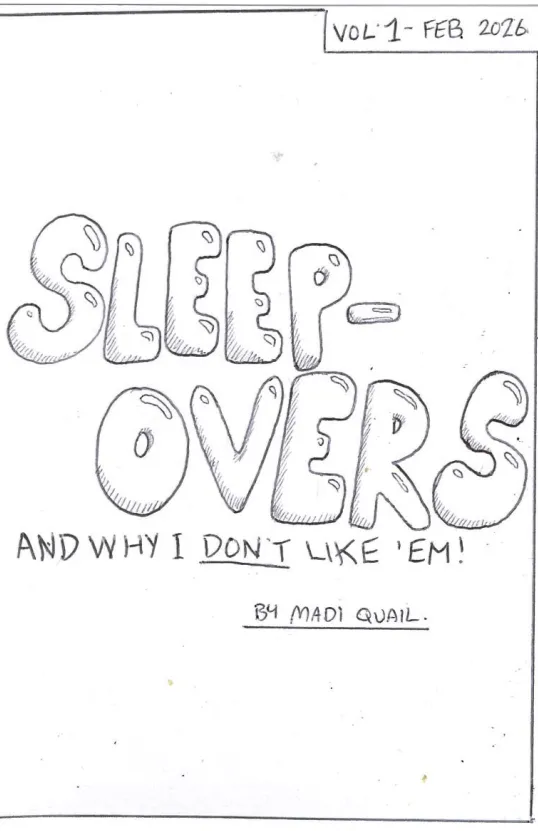 VOL. 1 - FEB 2026
SLEEP-
OVERS
AND WHY I DON'T LIKE 'EM!
BY MADI QUAIL.